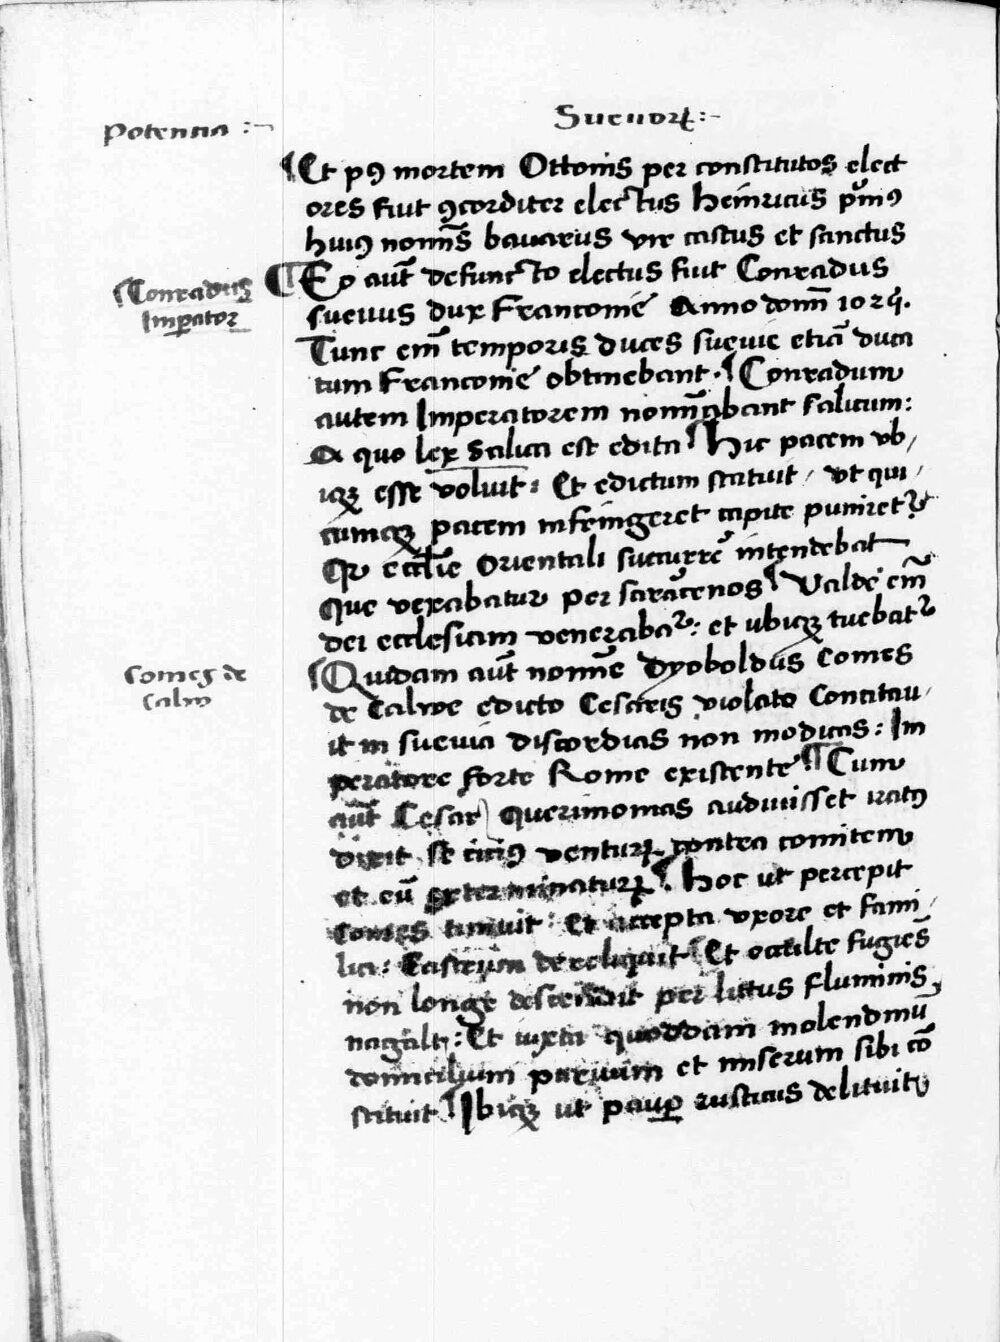 Potencia :~
Sueuoꝝ :~
¶Et pꝰ mortem Ottonis per constitutos elect
ores fiut ꝯcorditer electus heinricus pͥmꝰ
huiꝰ nom̄s bauarus vir castus et sanctus
¶Eo aūt defuncto electus fiut Conradus
¶Conradus
Imꝑator
sueuus dux Franconie Anno domī 1024.
Tunc em̄ temporis duces sueuie etiā duca
tum Franconie obtinebant. ¶Conradum
autem Imperatorem nomīabant salicum:
A quo lex Salica est edita ¶Hic pacem vb/
iqꝫ esse voluit: Et edictum statuit / vt qui/
cumqꝫ pacem infringeret capite puniret᷑
Qr̄ eccl̄ie Orientali succurrē intendebat
Que vexabatur per saracenos ¶Valde em̄
dei ecclesiam venerabat᷑: et ubiqꝫ tuebat᷑
¶Quidam aūt nomīe Dyoboldus Comes
Comes de
calw
de Calwe edicto Cesaris violato Concitau/
it in sueuia discordias non modicas: Im
peratore forte Rome existente ¶Cum
aūt Cesar querimonias audiuisset iratꝰ
dixit se ciciꝰ venturꝝ contra comitem
et eū exterminaturꝝ ¶. Hoc ut percepit
Comes timuit: Et accepta vxore et fami/
lia: Castrum dereliquit ¶Et occulte fugiēs
non longe descendit per littus fluminis
nagalt: Et iuxta quoddam molendinū
domicilium paruum et miserum sibi cō
stituit ¶Ibiqꝫ ut pauꝑ rusticus delituit